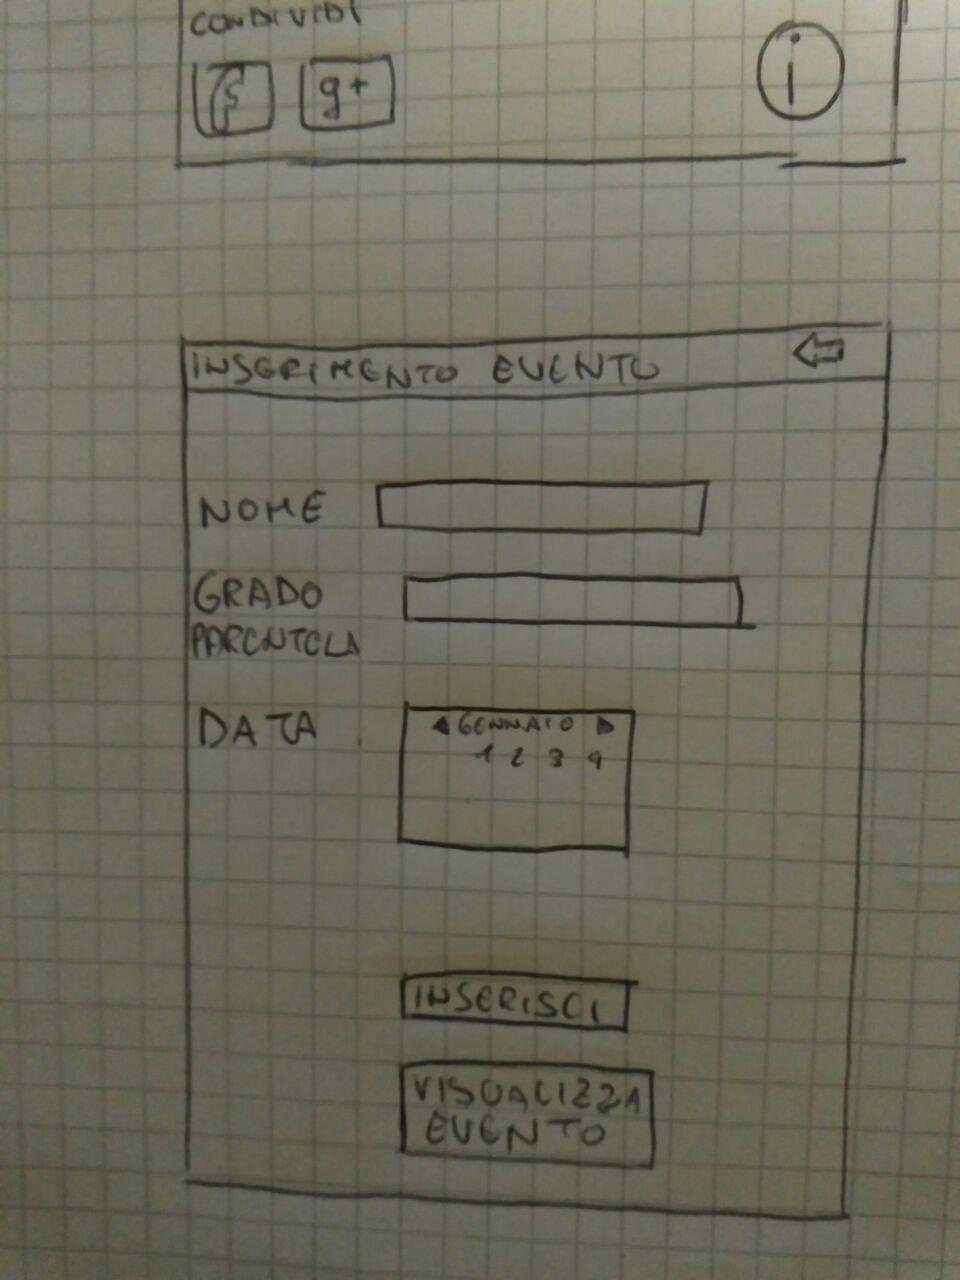 CONDIVIDI
g+
i
INSERIMENTO EVENTO
NOME
GRADO
PARENTELA
DATA
GENNAIO
1 2 3 4
INSERISCI
VISUALIZZA
EVENTO